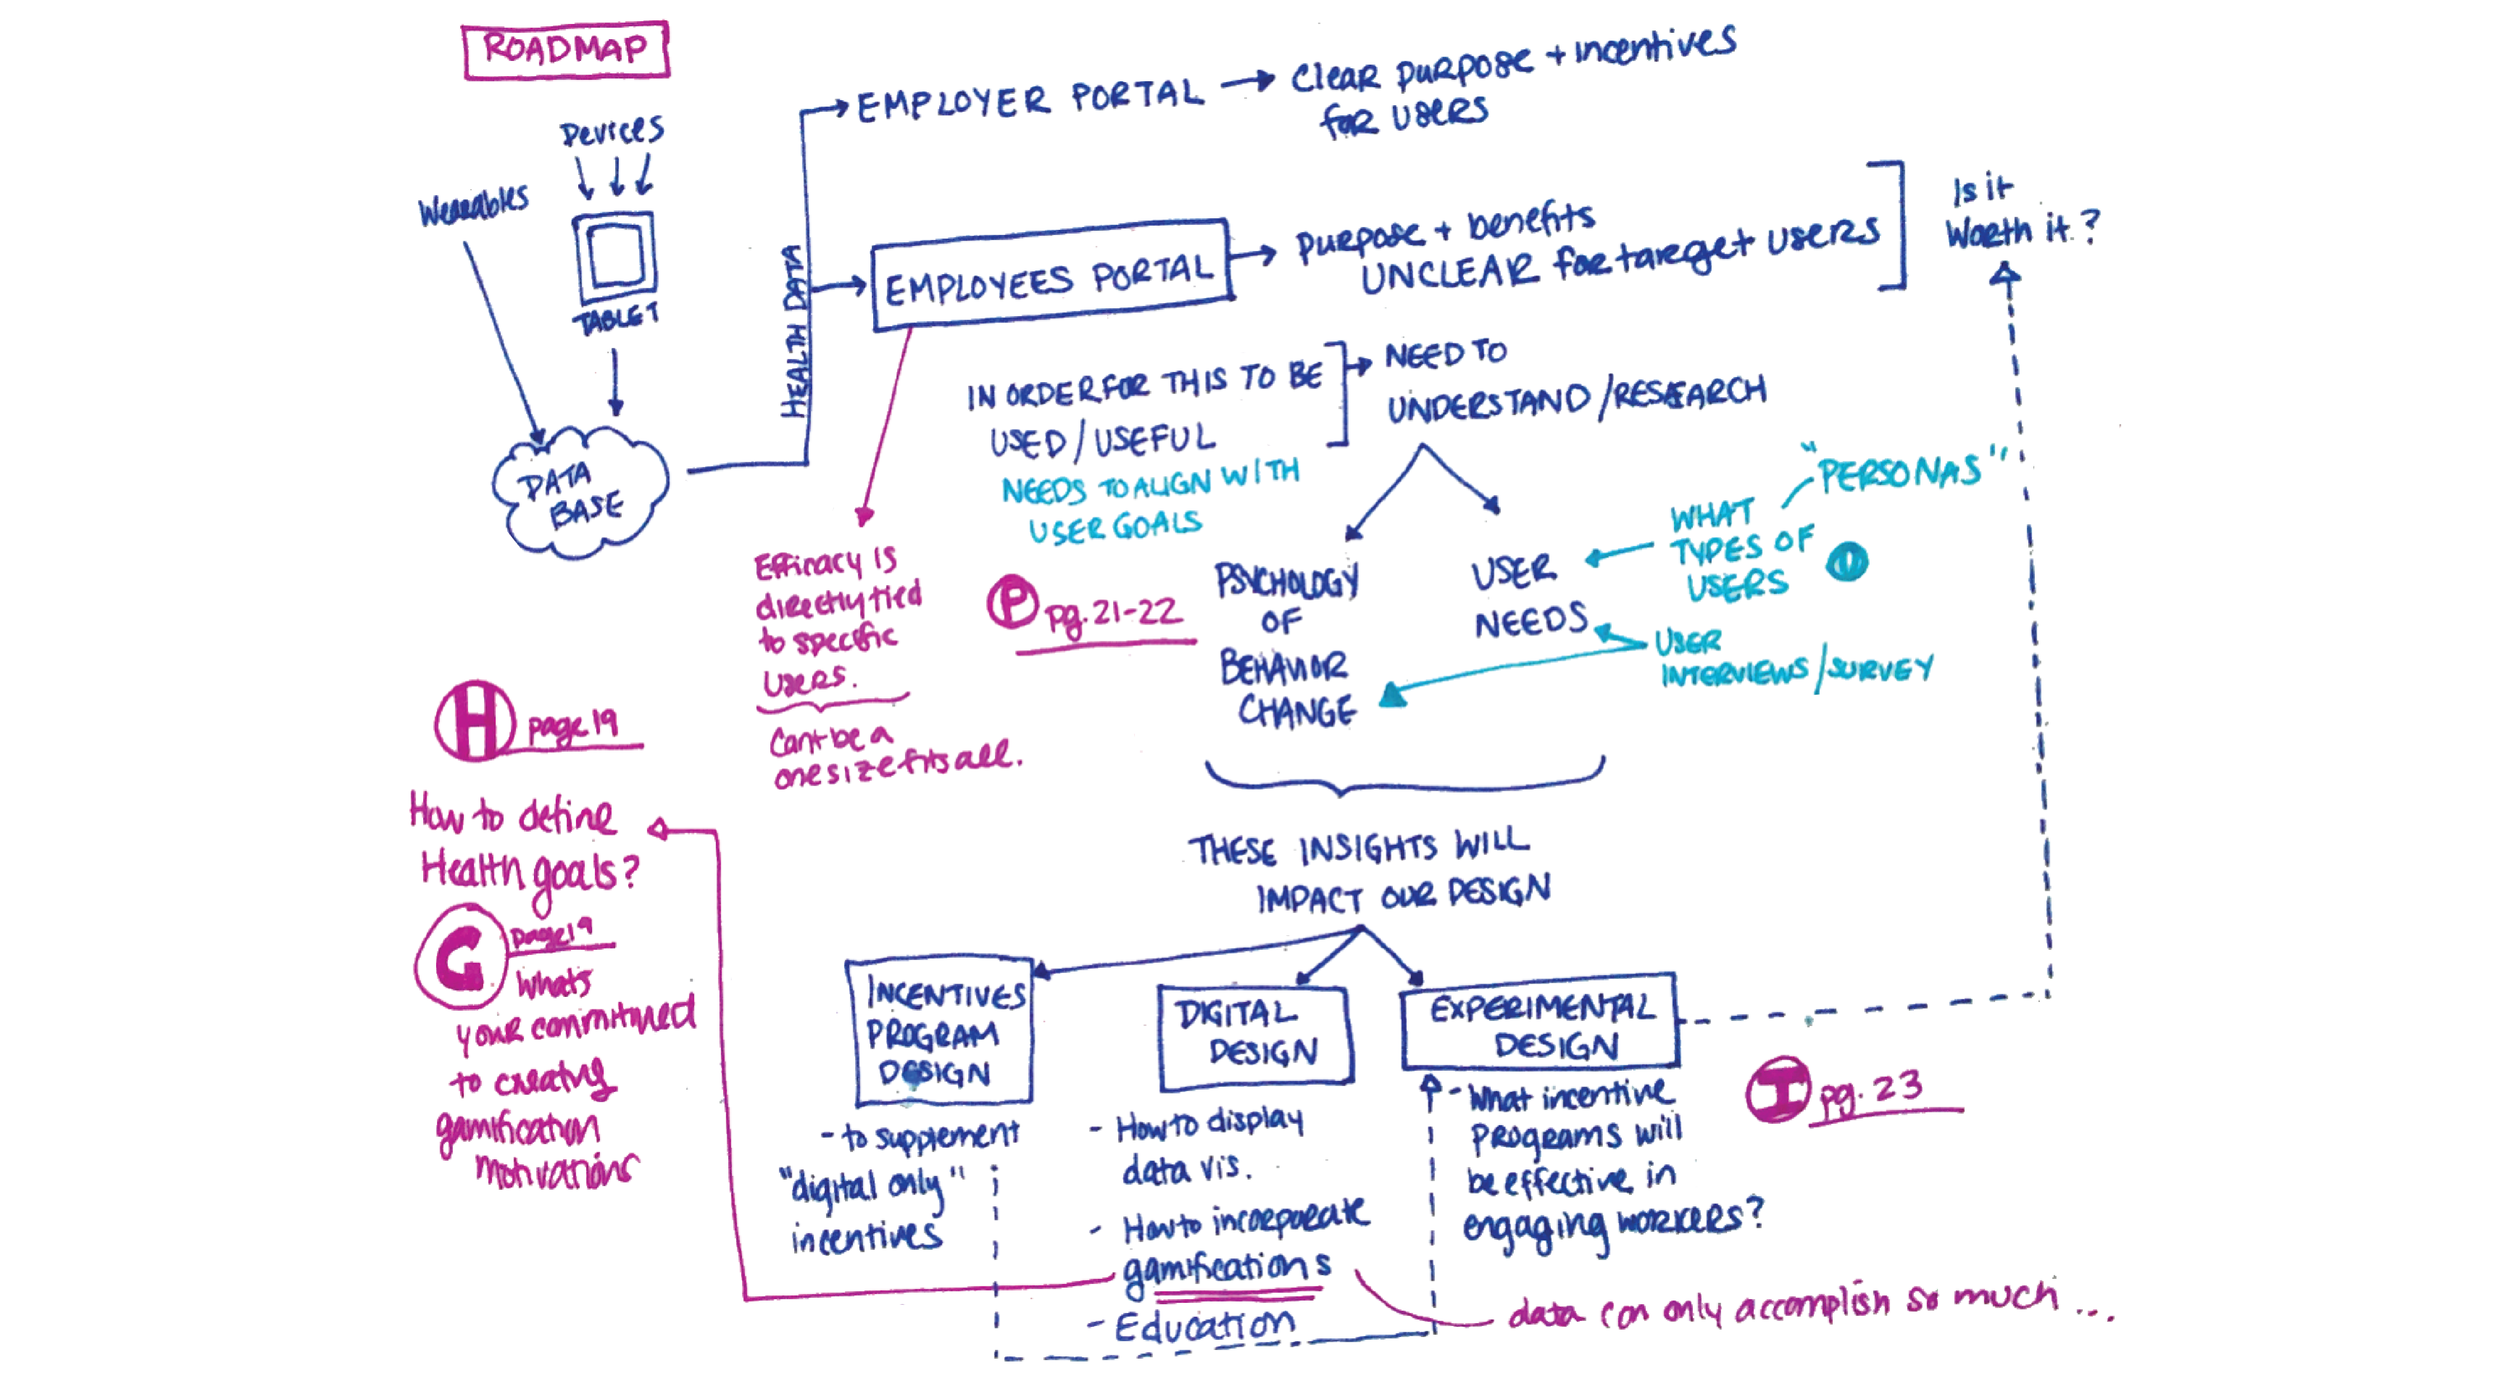 ROADMAP
Devices
Wearables
TABLET
DATA
BASE
HEALTH DATA
EMPLOYER PORTAL
Clear purpose + incentives
for users
EMPLOYEES PORTAL
purpose + benefits
UNCLEAR for target users
Is it
Worth it?
IN ORDER FOR THIS TO BE
USED / USEFUL
NEEDS TO ALIGN WITH
USER GOALS
NEED TO
UNDERSTAND / RESEARCH
Efficacy is
directly tied
to specific
users.
Cant be a
one size fits all.
P pg. 21-22
PSYCHOLOGY
OF
BEHAVIOR
CHANGE
USER
NEEDS
"PERSONAS"
WHAT
TYPES OF
USERS
USER
INTERVIEWS / SURVEY
H page 19
How to define
Health goals?
G page 19
Whats
your commitmed
to creating
gamification
motivations
THESE INSIGHTS WILL
IMPACT OUR DESIGN
INCENTIVES
PROGRAM
DESIGN
- to supplement
"digital only"
incentives
DIGITAL
DESIGN
- How to display
data vis.
- How to incorporate
gamifications
- Education
EXPERIMENTAL
DESIGN
- What incentive
programs will
be effective in
engaging workers?
I pg. 23
data can only accomplish so much ...